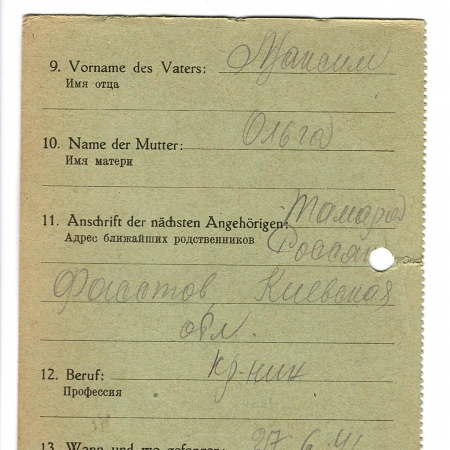 9. Vorname des Vaters: Максим
Имя отца
10. Name der Mutter: Ольга
Имя матери
11. Anschrift der nächsten Angehörigen: Тамара
Адрес ближайших родственников
Фастов, Киевская
обл.
12. Beruf: кр-ник
Профессия
13. Wann und wo gefangen: 27.6.41